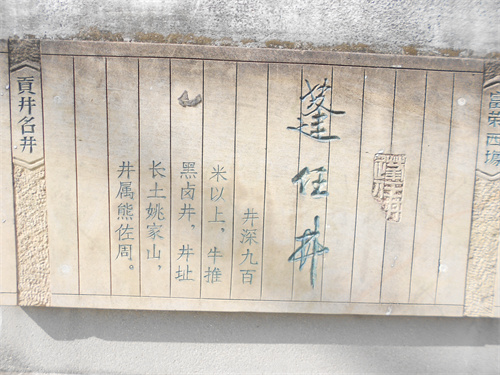 富荣西场
蓬任井
井深九百
米以上，牛推
黑卤井，井址
长土姚家山，
井属熊佐周。
貢井名井